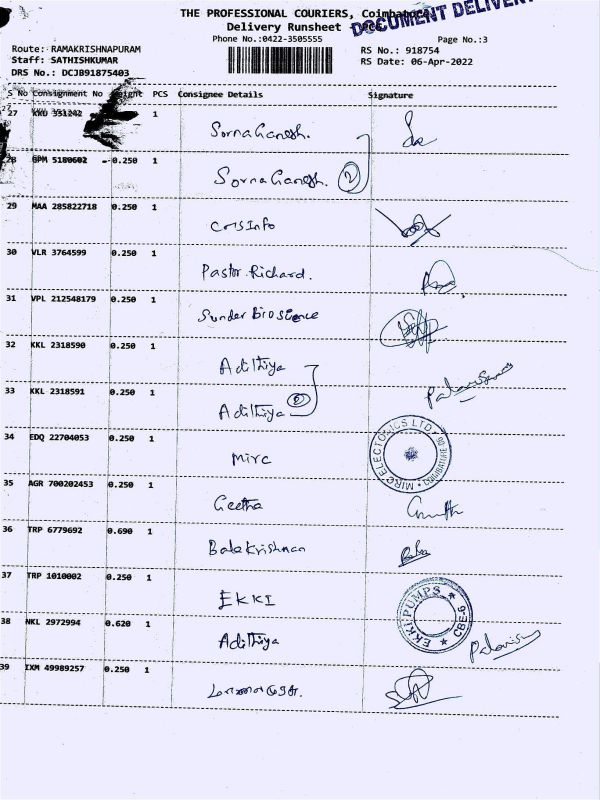 THE PROFESSIONAL COURIERS, Coimbatore
DOCUMENT DELIVERY
Delivery Runsheet
Phone No.:0422-3505555
Page No.:3
Route: RAMAKRISHNAPURAM
RS No.: 918754
Staff: SATHISHKUMAR
RS Date: 06-Apr-2022
DRS No.: DCJB91875403
S No Consignment No Weight PCS Consignee Details Signature
27 KKD 331242 1 Sorna Ganesh.
28 GPM 5180602 0.250 1 Sorna Ganesh. 2
29 MAA 285822718 0.250 1 CMS Info
30 VLR 3764599 0.250 1 Pastor Richard.
31 VPL 212548179 0.250 1 Sunder bioscience
32 KKL 2318590 0.250 1 Adithiya
33 KKL 2318591 0.250 1 Adithiya
34 EDQ 22704053 0.250 1 Mirc MIRC ELECTONICS LTD
35 AGR 700202453 0.250 1 Geetha
36 TRP 6779692 0.690 1 Balakrishnan Bala
37 TRP 1010002 0.250 1 EKKI EKKI PUMPS ★ CBE-9 ★
38 NKL 2972994 0.620 1 Adithiya
39 IXM 49989257 0.250 1